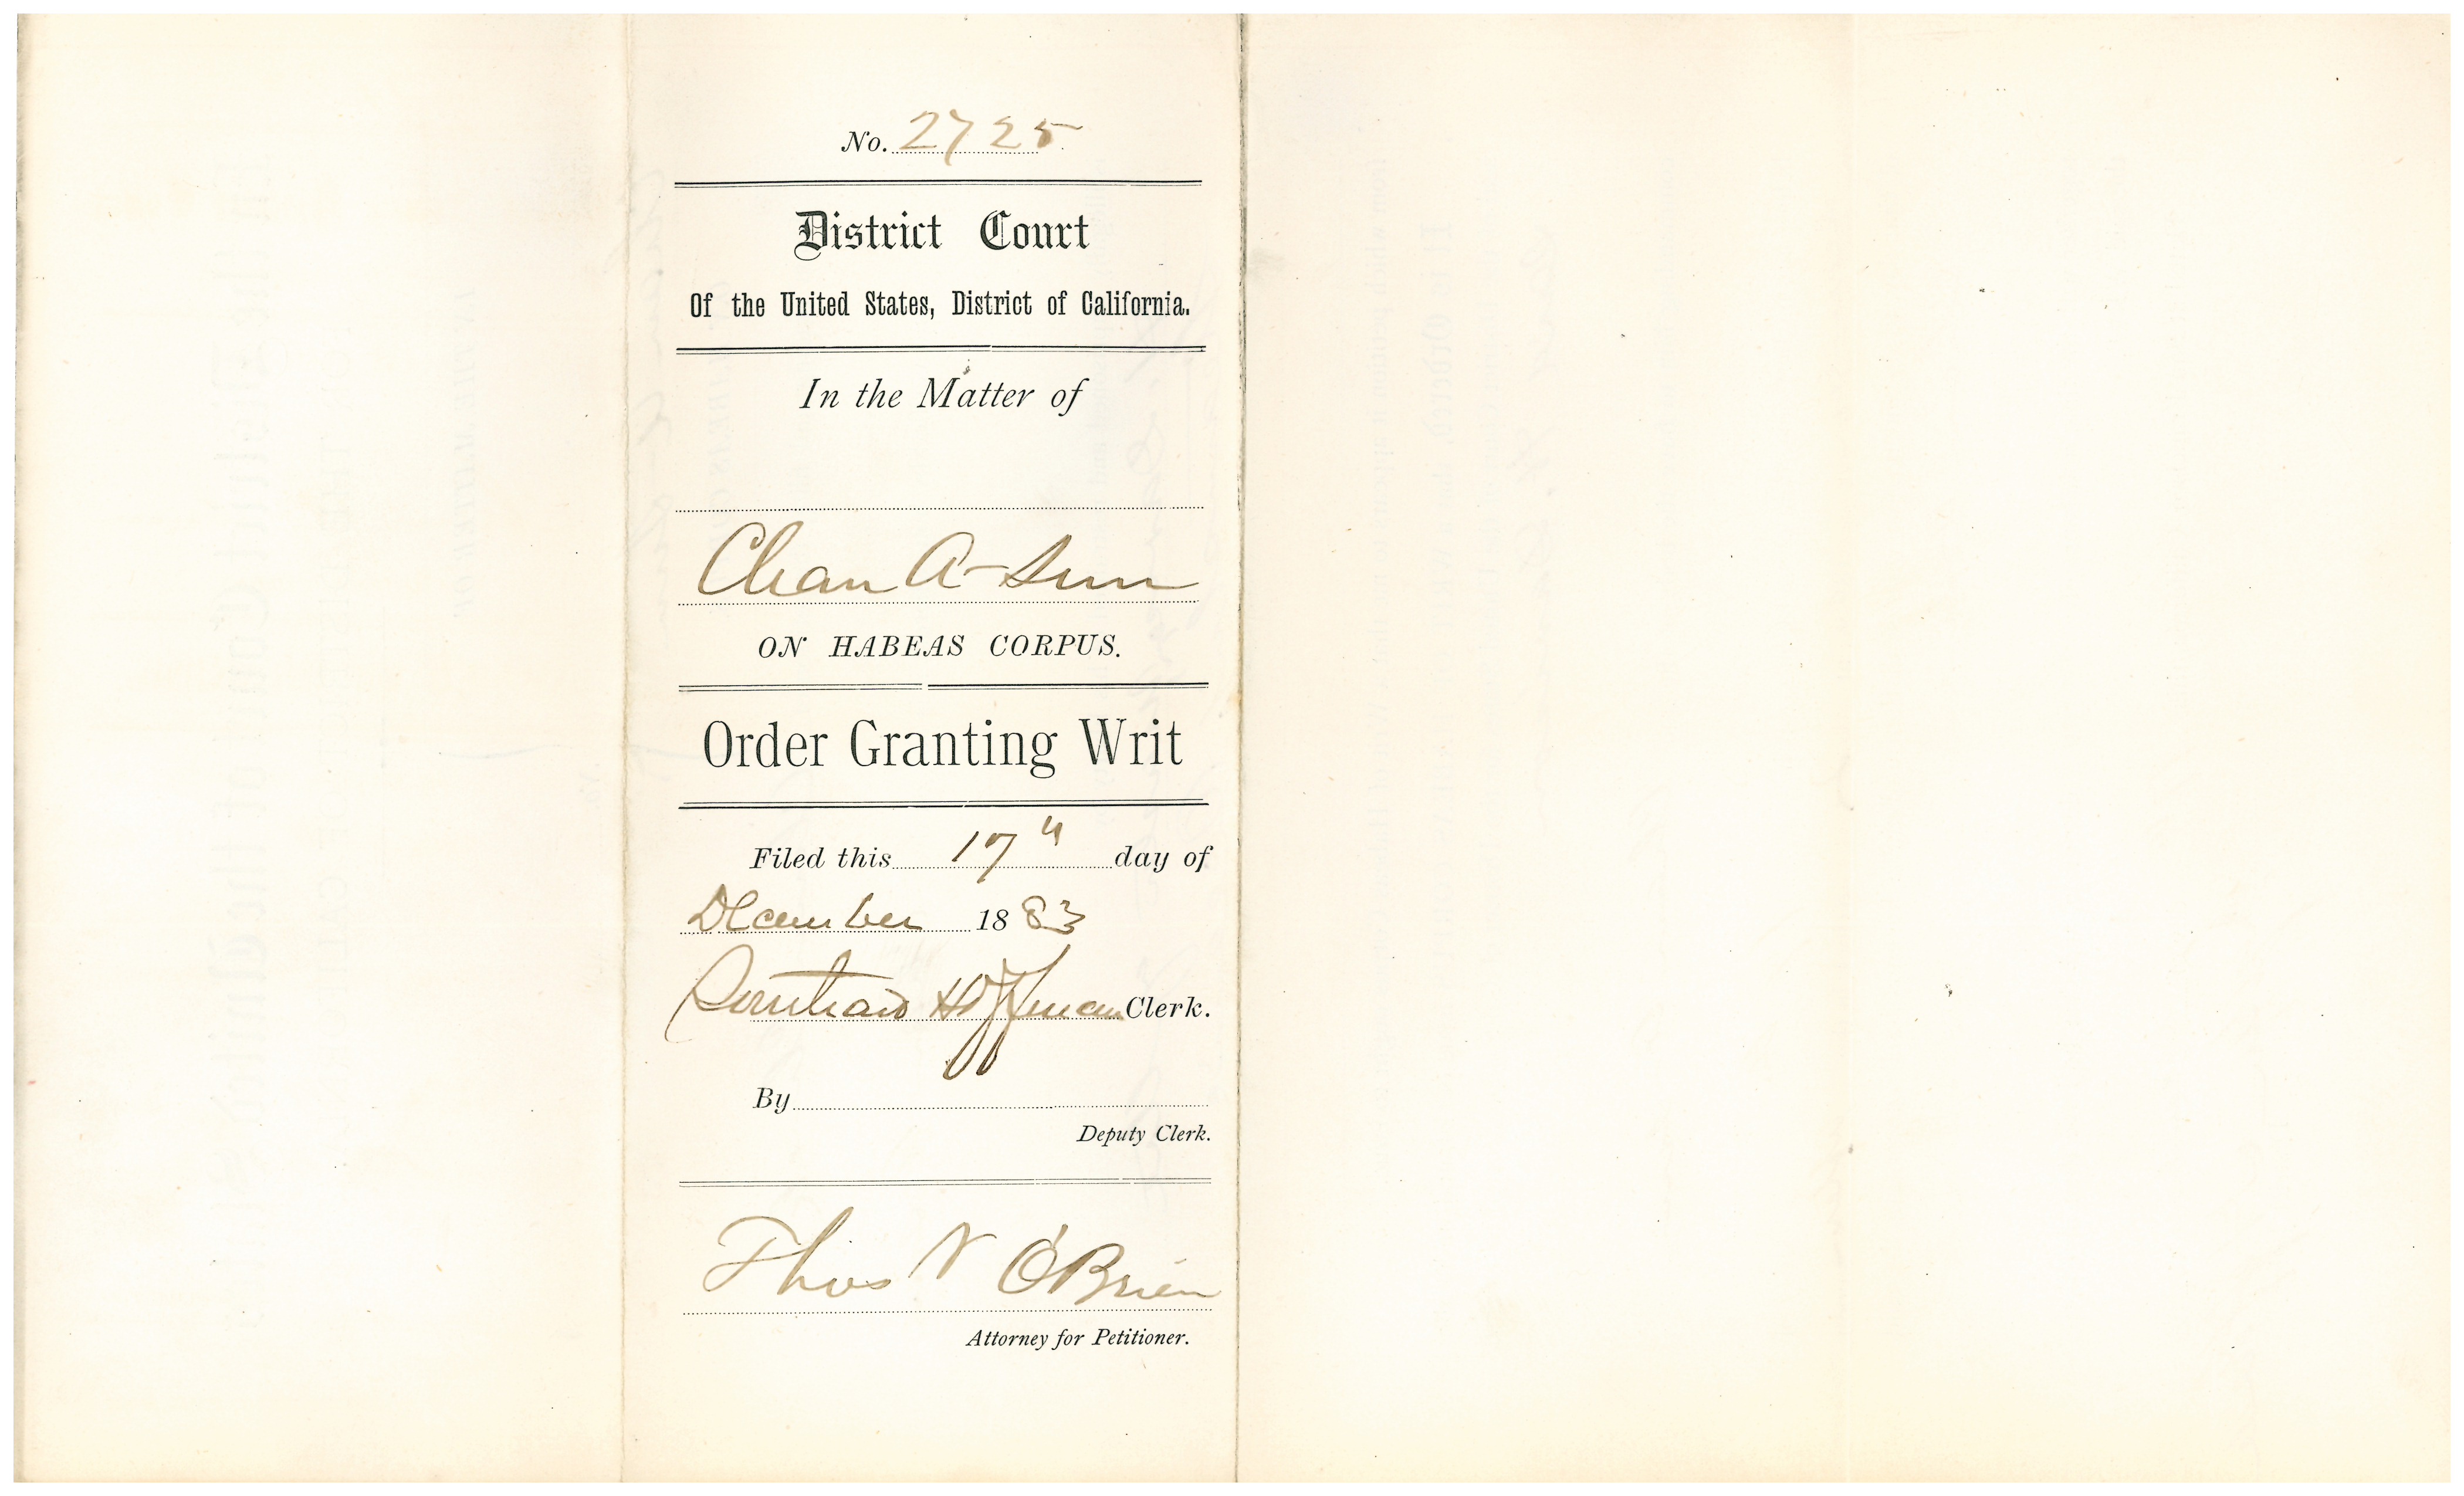 No. 2725
District Court
Of the United States, District of California.
In the Matter of
Chan A-Sun
ON HABEAS CORPUS.
Order Granting Writ
Filed this 17" day of
December 1883
Hoffman Clerk.
By
Deputy Clerk.
Thos V O'Brien
Attorney for Petitioner.